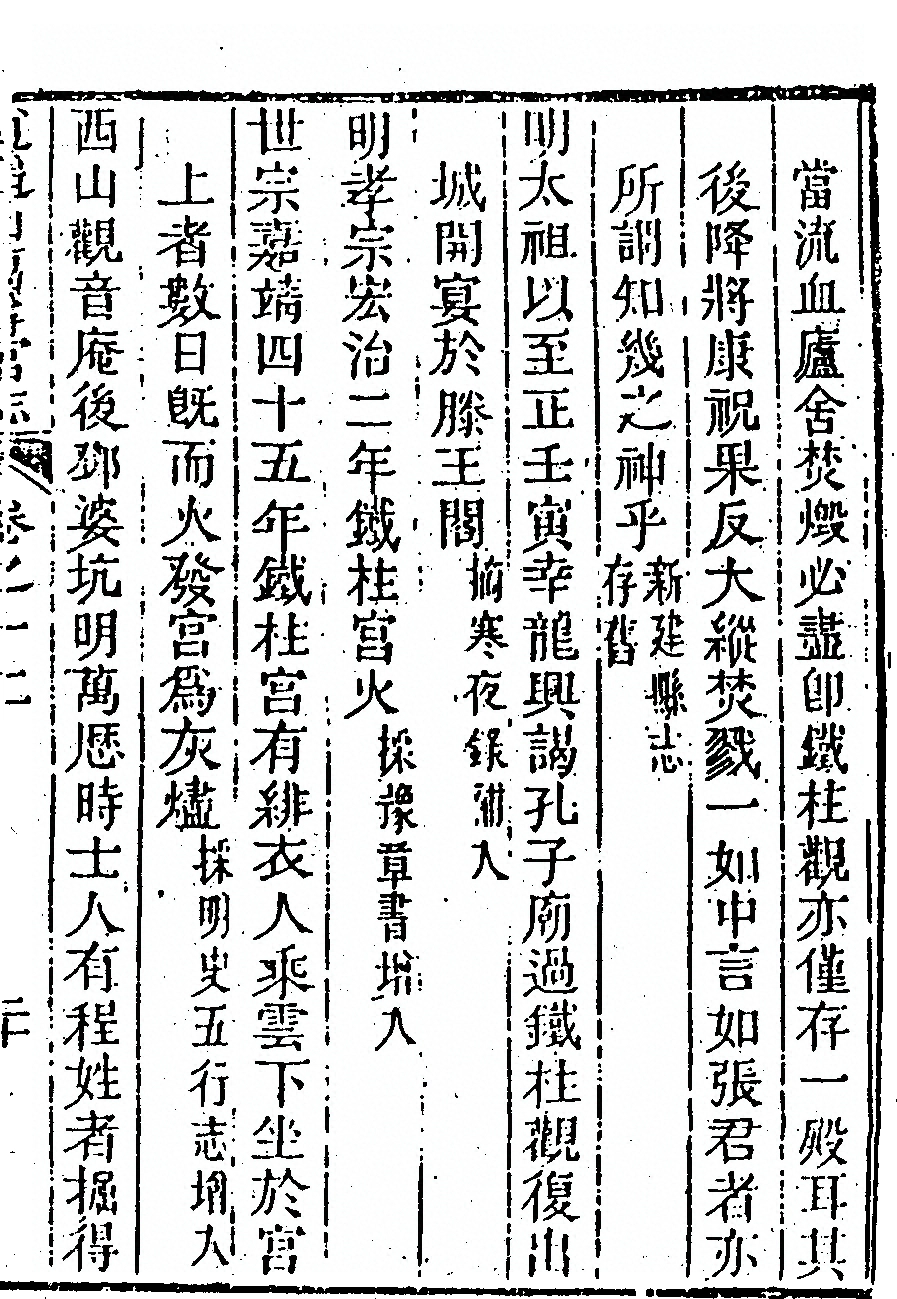 當流血廬舍焚燬必盡卽鐵柱觀亦僅存一殿耳其
後降將康祝果反大縱焚戮一如中言如張君者亦
所謂知幾之神乎新建縣志存舊
明太祖以至正壬寅幸龍興謁孔子廟過鐵柱觀復出
城開宴於滕王閣摘寒夜錄增入
明孝宗宏治二年鐵柱宮火採豫章書增入
世宗嘉靖四十五年鐵柱宮有緋衣人乘雲下坐於宮
上者數日旣而火發宮爲灰燼採明史五行志增入
西山觀音庵後鄧婆坑明萬厯時士人有程姓者掘得
卷之十二
二十